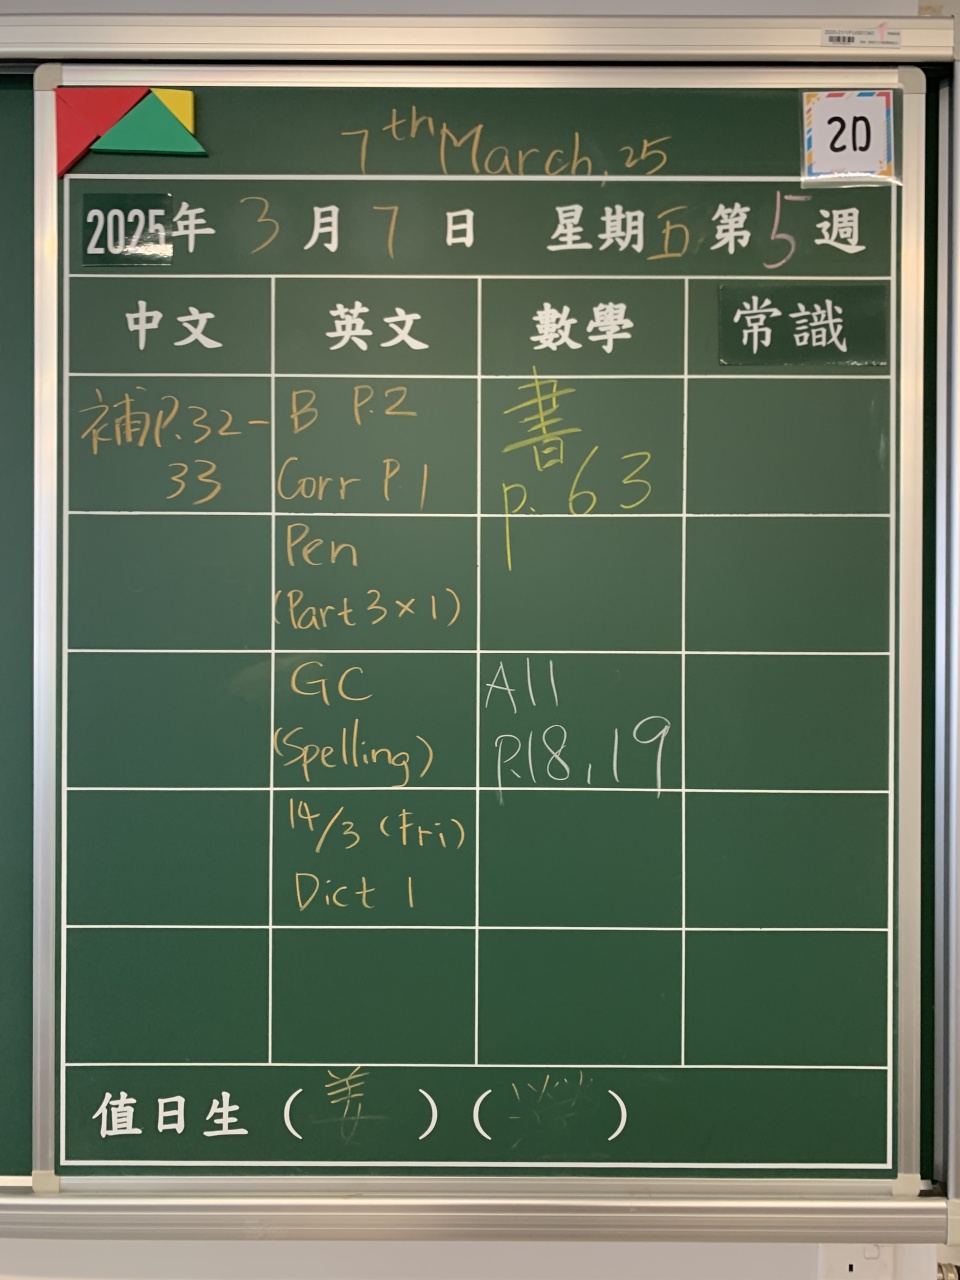 7th March, 25
2D
2025年 3 月 7 日 星期五 第 5 週
中文 英文 數學 常識
補P.32-
33
B P.2
Corr P.1
書
p. 63
Pen
(Part 3 × 1)
GC
(Spelling)
A11
P.18, 19
14/3 (Fri)
Dict 1
值日生 ( 姜 ) ( )